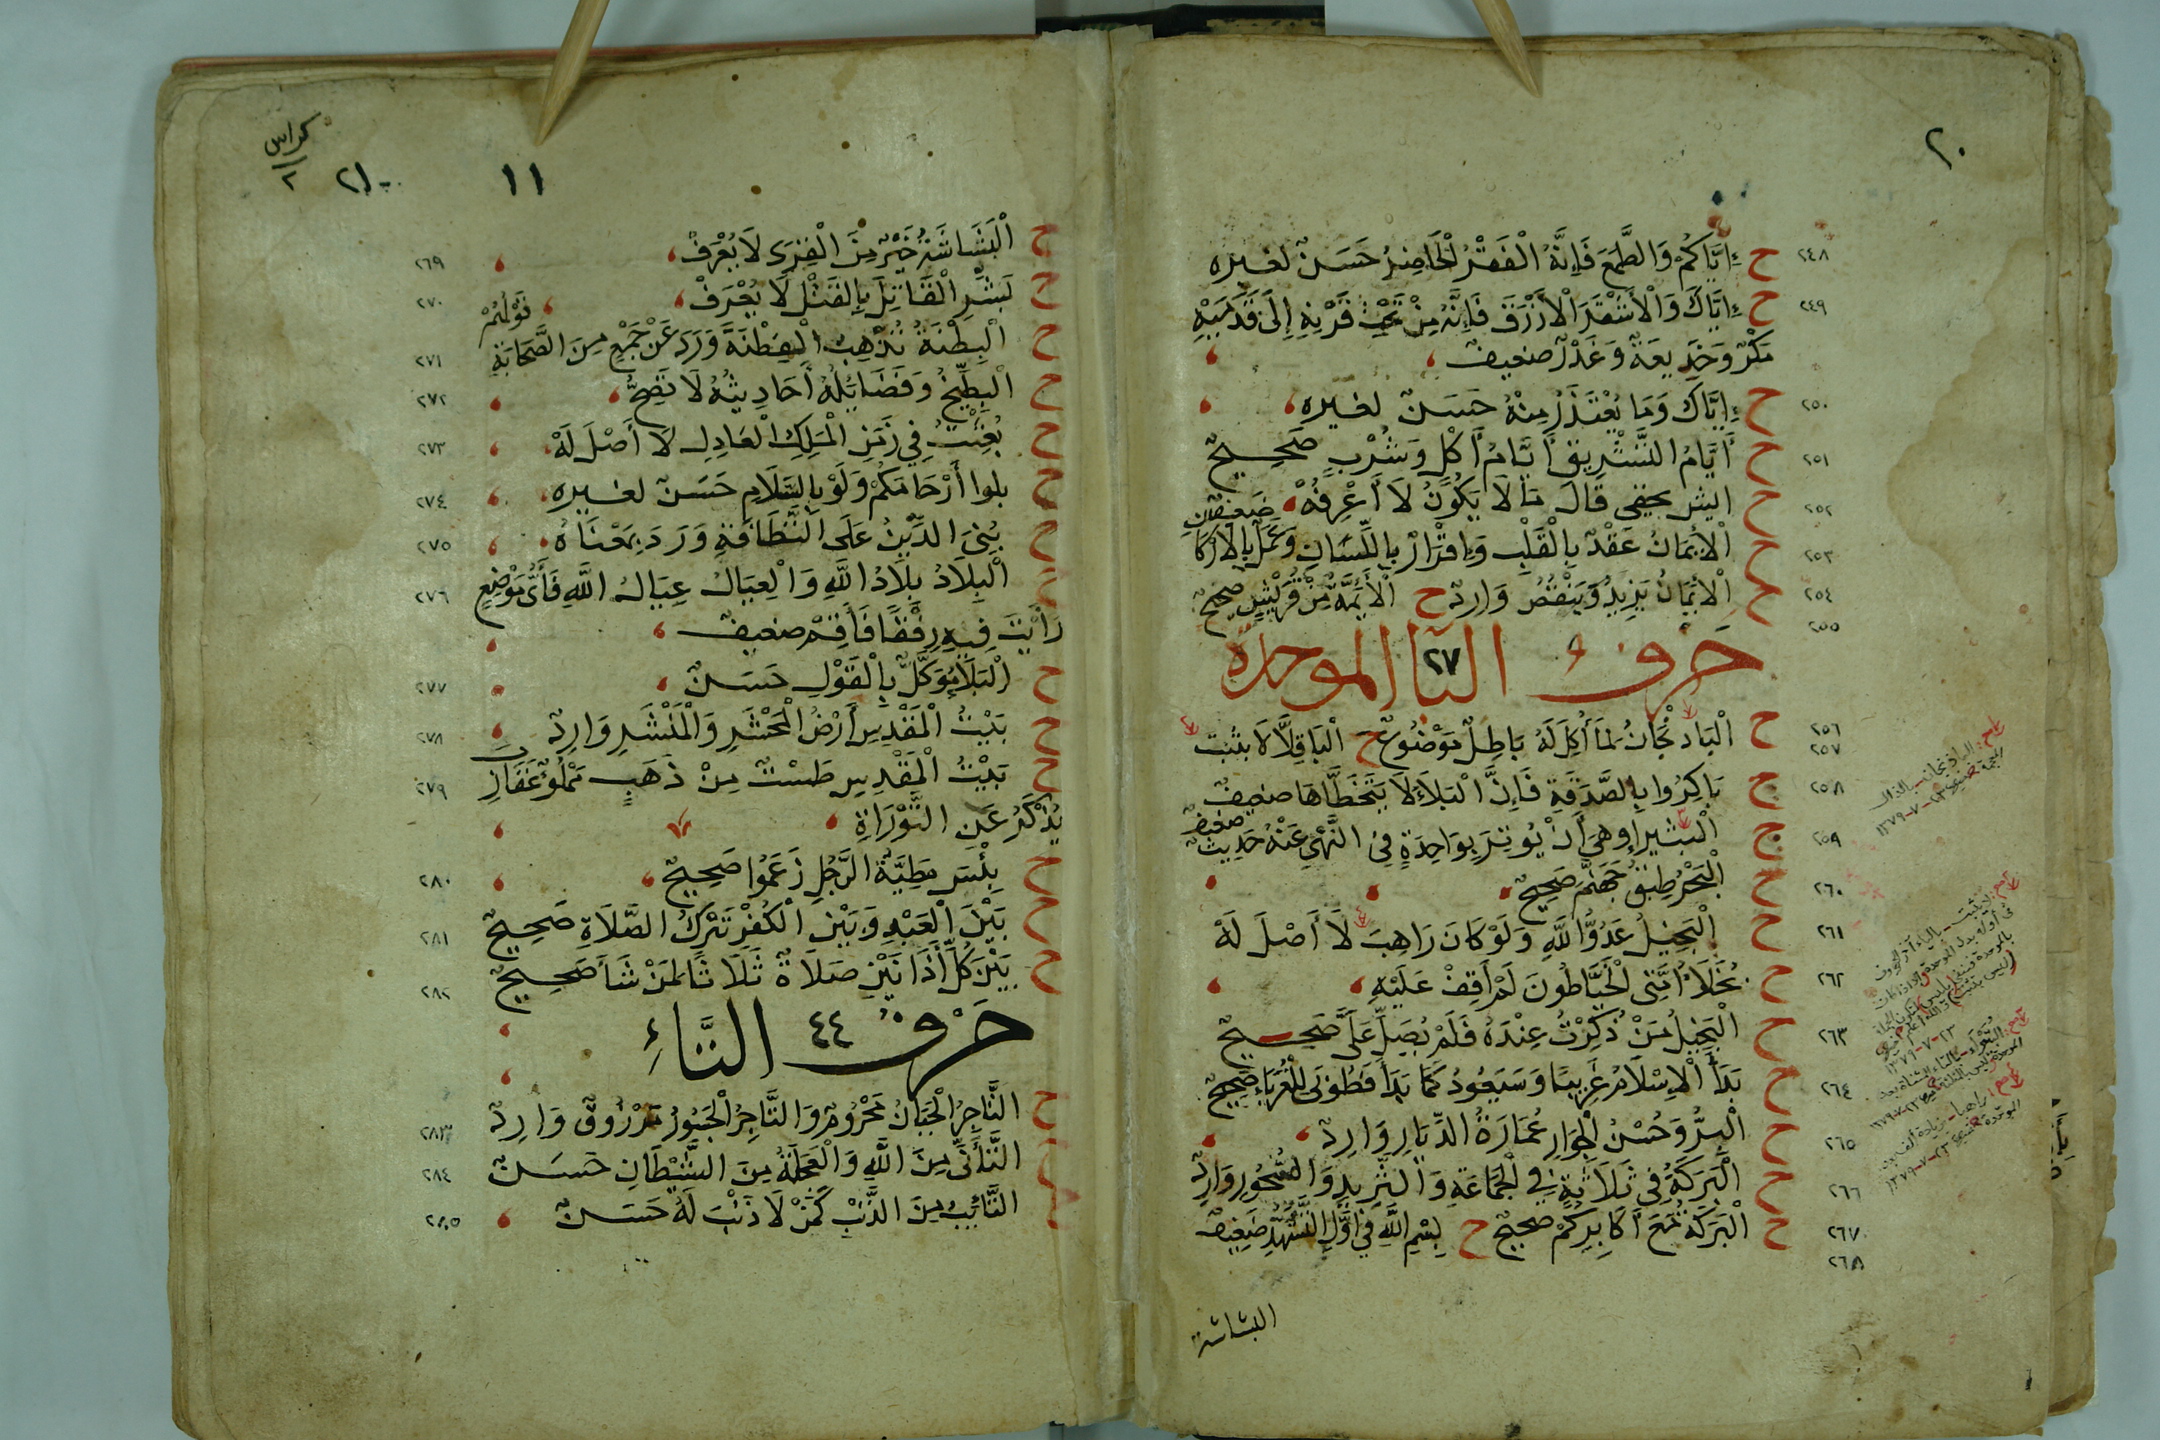 ٢٠
٢٤٨ ح ءاِيَّاكُمْ وَالطَّمَعَ فَإِنَّهُ الْفَقْرُ الْحَاضِرُ حَسَنٌ لغيره
٢٤٩ ح ءاِيَّاكَ وَالْأَشْقَرَ الْأَزْرَقَ فَإِنَّهُ مِنْ تَحْتِ قَرْنِهِ إِلَى قَدَمَيْهِ
مَكْرٌ وَخَدِيعَةٌ وَغَدْرٌ ضعيف
٢٥٠ ح ءاِيَّاكَ وَمَا يُعْتَذَرُ مِنْهُ حَسَنٌ لغيره
٢٥١ ح أَيَّامُ التَّشْرِيقِ أَيَّامُ أَكْلٍ وَشُرْبٍ صَحِيحٌ
٢٥٢ ح قَالَ مَا لَا يَكُونُ لَا أَعْرِفُهُ
٢٥٣ ح الْإِيمَانُ عَقْدٌ بِالْقَلْبِ وَإِقْرَارٌ بِاللِّسَانِ وَعَمَلٌ بِالْأَرْكَانِ ضَعِيفٌ
٢٥٤ ح الْإِيمَانُ يَزِيدُ وَيَنْقُصُ وَارِدٌ ح الْأَئِمَّةُ مِنْ قُرَيْشٍ صحيح
٢٥٥
حَرف البَآ الموحدة
٢٧
٢٥٦ ح الْبَاذِنْجَانُ لِمَا أُكِلَ لَهُ بَاطِلٌ مَوْضُوعٌ ح الْبَاقِلَّا لَا يثبت
٢٥٧
٢٥٨ ح بَاكِرُوا بِالصَّدَقَةِ فَإِنَّ الْبَلَآءَ لَا يَتَخَطَّاهَا ضعيف
٢٥٩ ح الْبتيرا وهيَ أَنْ يُوتِرَ بِوَاحِدَةٍ فِي النَّهْيِ عَنْهُ حَدِيثٌ ضعيف
٢٦٠ ح الْبَحْرُ طِبقُ جَهَنَّمَ صَحِيحٌ
٢٦١ ح الْبَخِيلُ عَدُوُّ اللَّهِ وَلَوْ كَانَ رَاهِبَ لَا أَصْلَ لَهْ
٢٦٢ ح بُخَلَآءُ أُمَّتِى الْخَيَّاطُونَ لَمْ أَقِفْ عَلَيْهِ
٢٦٣ ح الْبَخِيلُ مَنْ ذُكِرْتُ عِنْدَهُ فَلَمْ يُصَلِّ عَلَىَّ صَحِيحٌ
٢٦٤ ح بَدَأَ الْإِسْلَامُ غَرِيبًا وَسَيَعُودُ كَمَا بَدَأَ فَطُوبَى لِلْغُرَبَاءِ صَحِيحٌ
٢٦٥ ح الْبِرُّ وَحُسْنُ الْجِوَارِ عُمَارَةُ الدِّيَارِ وَارِدٌ
٢٦٦ ح الْبَرَكَةُ فِي ثَلَاثَةٍ فِي الْجَمَاعَةِ وَالثَّرِيدِ وَالسُّحُورِ وَارِدٌ
٢٦٧ ح الْبَرَكَةُ مَعَ أَكَابِرِكُمْ صحيحٌ ح بِسْمِ اللَّهِ فِي أَوَّلِ التَّشَهُّدِ ضَعِيف
٢٦٨
البشاشة
كراس
٢
٢١
١١
ح الْبَشَاشَةُ خَيْرٌ مِنَ الْقِرَى لَا يُعْرَفْ ٢٦٩
ح بَشِّرِ الْقَاتِلَ بِالْقَتْلِ لَا يُعْرَفْ ٢٧٠
ح الْبِطْنَةُ تُذْهِبُ الْفِطْنَةَ وَرَدَ عَنْ جَمْعٍ مِنَ الصَّحَابَةِ قَوْلُهُمْ ٢٧١
ح الْبِطِّيخُ وَفَضَايِلُهُ أَحَادِيثُهُ لَا تَصِحُّ ٢٧٢
ح بُعِثْتُ فِي زَمَنِ الْمَلِكِ الْعَادِلِ لَا أَصْلَ لَهْ ٢٧٣
ح بلوا أَرْحَامَكُمْ وَلَوْ بِالسَّلَامِ حَسَنٌ لغيره ٢٧٤
ح بُنِيَ الدِّينُ عَلَى النَّظَافَةِ وَرَدَ بِمَعْنَاهُ ٢٧٥
ح الْبِلَادُ بِلَادُ اللَّهِ وَالْعِبَادُ عِبَادُ اللَّهِ فَأَىُّ مَوْضِعٍ ٢٧٦
رَأَيْتَ فِيهِ رِفْقًا فَأَقِمْ ضعيف
ح الْبَلَآءُ مُوَكَّلٌ بِالْقَوْلِ حَسَنٌ ٢٧٧
ح بَيْتُ الْمَقْدِسِ أَرْضُ الْمَحْشَرِ وَالْمَنْشَرِ وَارِدٌ ٢٧٨
ح بَيْتُ الْمَقْدِسِ طَسْتٌ مِنْ ذَهَبٍ مَمْلُوٌّ عَقَارِبَ ٢٧٩
يُذْكَرُ عَنِ التَّوْرَاةِ
ح بِئْسَ مَطِيَّةُ الرَّجُلِ زَعَمُوا صَحِيحٌ ٢٨٠
ح بَيْنَ الْعَبْدِ وَبَيْنَ الْكُفْرِ تَرْكُ الصَّلَاةِ صَحِيحٌ ٢٨١
ح بَيْنَ كُلِّ أَذَانَيْنِ صَلَاةٌ ثَلَاثًا لِمَنْ شَآءَ صَحِيحٌ ٢٨٢
حَرْفُ التَّاءِ
٤٤
ح التَّاجِرُ الْجَبَانُ مَحْرُومٌ وَالتَّاجِرُ الْجَسُورُ مَرْزُوقٌ وَارِدٌ ٢٨٣
ح التَّأَنِّي مِنَ اللَّهِ وَالْعَجَلَةُ مِنَ الشَّيْطَانِ حَسَنٌ ٢٨٤
ح التَّائِبُ مِنَ الذَّنْبِ كَمَنْ لَا ذَنْبَ لَهُ حَسَنٌ ٢٨٥